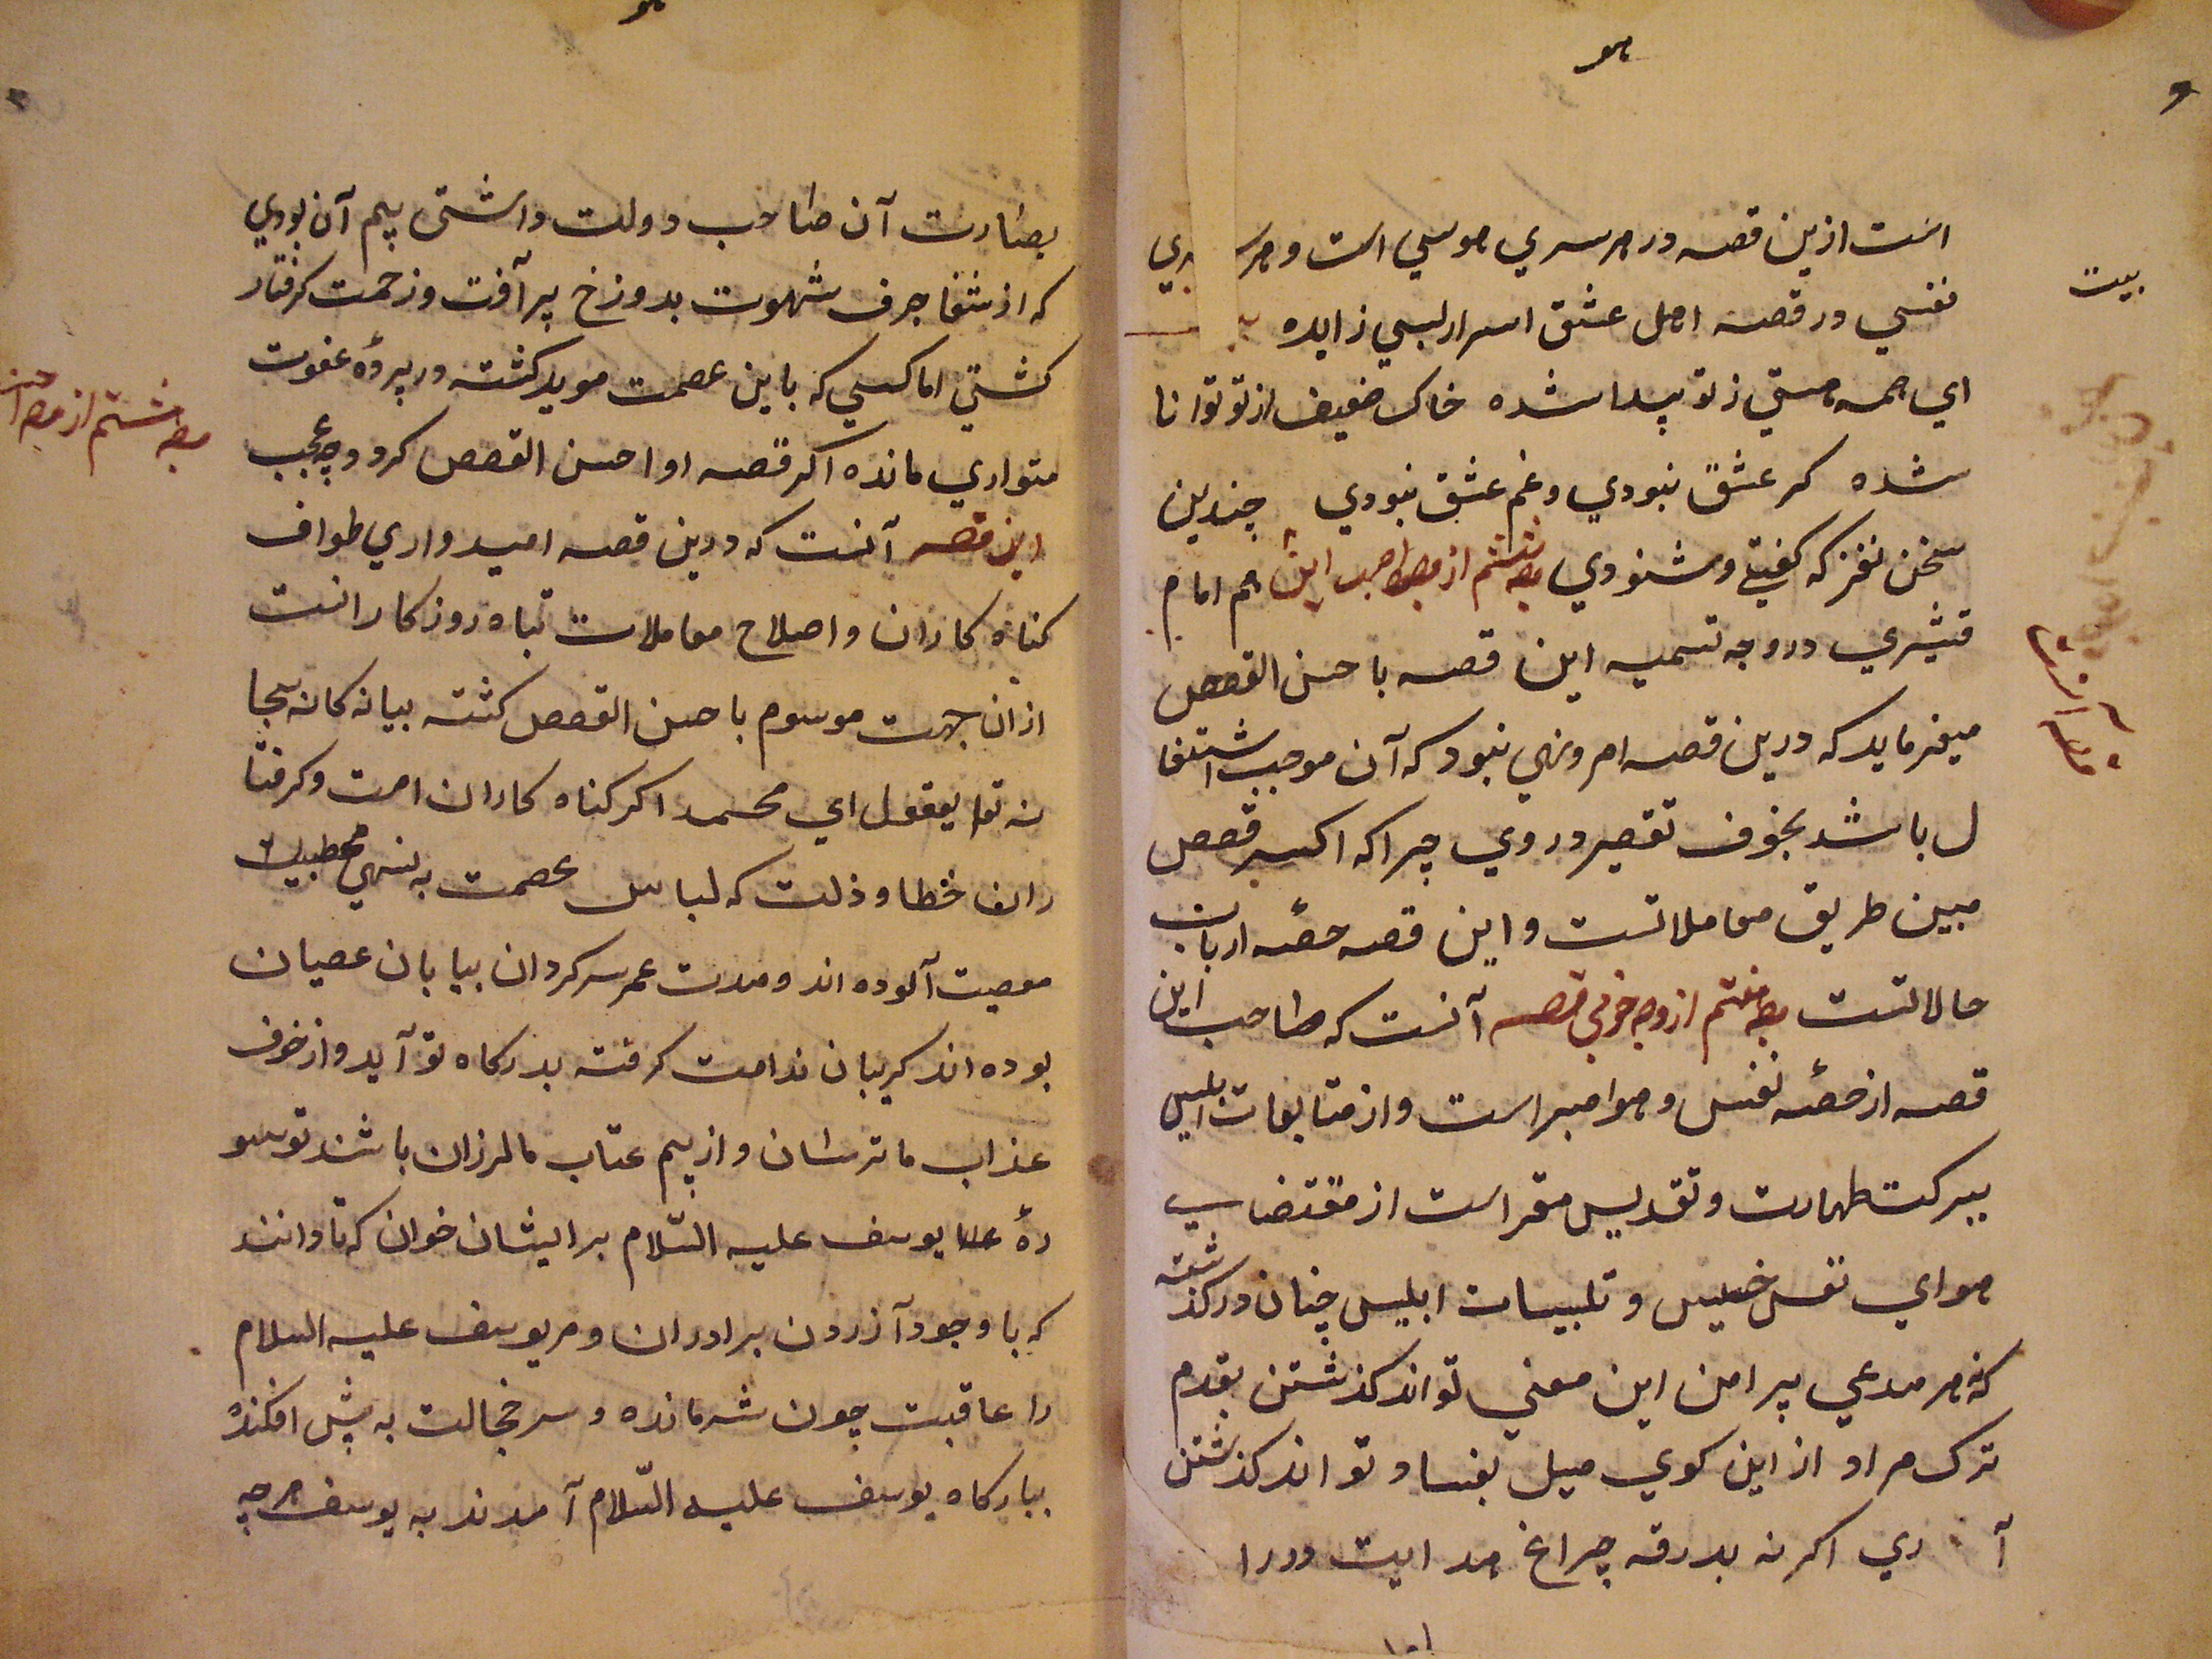 هو
است ازین قصه در هر سری هوسي است و هر سری
نفسي در قصه اهل عشق اسرار بسي زایده
بیت
اي همه هستي ز تو پیدا شده خاک ضعیف از تو توانا
شده کر عشق نبودي و غم عشق نبودي چندین
سخن نغز که کفتي و شنودي وجه ششم از این هم امام
قشیري در وجه تسمیه این قصه باحسن القصص
میفرماید که درین قصه امر و نهي نبود که آن موجب اشتغا
ل باشد بخوف تقصیر در وي چرا که اکثر قصص
مبین طریق معاملاتست و این قصه حصهٔ ارباب
حالاتست وجه هفتم از وجه خوبی قصه آنست که صاحب این
قصه از حصهٔ نفس و هوا مبراست و از متابعات ابلیس
ببرکت طهارت و تقدیس مقر است از مقتضاي
هواي نفس خسیس و تلبیسات ابلیس چنان درکذشته
که هر مدعي پیرامن این معني تواند کذشتن بقدم
ترک مراد از این کوي میل بفساد تواند کذشتن
آري اکر نه بدرقه چراغ هدایت در را
هو
بصارت آن صاحب دولت داشتی بیم آن بودي
که از شفا جرف شهوت بدوزخ پر آفت و زحمت کرفتار
کشتي اما کسي که باین عصمت موید کشته در پردهٔ عفوت
متواري مانده اکر قصه او احسن القصص کردد چه عجب
وجه هشتم از وجه احسن
این قصه آنست که درین قصه امیدواري طواف
کناه کاران و اصلاح معاملات تباه روزکارانست
از ان جهت موسوم باحسن القصص کشته بیانه کانه سبحا
نه تعا یقول اي محمد اکر کناه کاران امت و کرفتا
ران خطا و ذلت که لباس عصمت به
معصیت آلوده اند و مدت عمر سرکردان بیابان عصیان
بوده اند کریبان ندامت کرفته بدرکاه تو آید و از خوف
عذاب ما ترسان و از بیم عتاب ما لرزان باشند تو سو
رهٔ علا یوسف علیه السّلام بر ایشان خوان که تا دانند
که با وجود آزردن برادران و مر یوسف علیه السلام
را عاقبت چون شرمانده و سر خجالت به پیش افکنده
ببارکاه یوسف علیه السّلام آمدند به یوسف هر چه